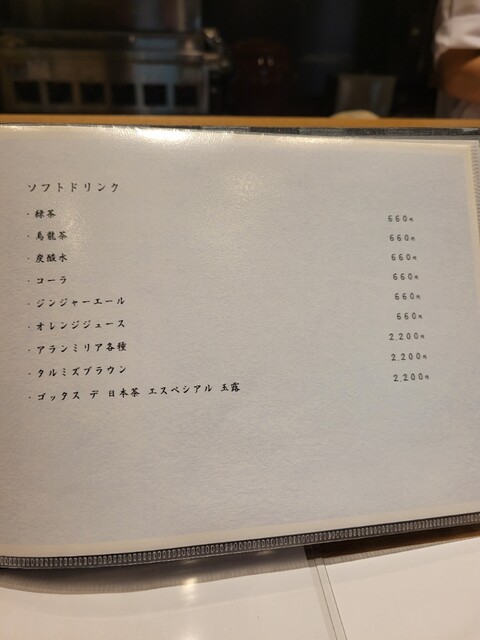 ソフトドリンク
・緑茶 660円
・烏龍茶 660円
・炭酸水 660円
・コーラ 660円
・ジンジャーエール 660円
・オレンジジュース 660円
・アランミリア各種 2,200円
・タルミズブラウン 2,200円
・ゴッタス デ 日本茶 エスペシアル 玉露 2,200円